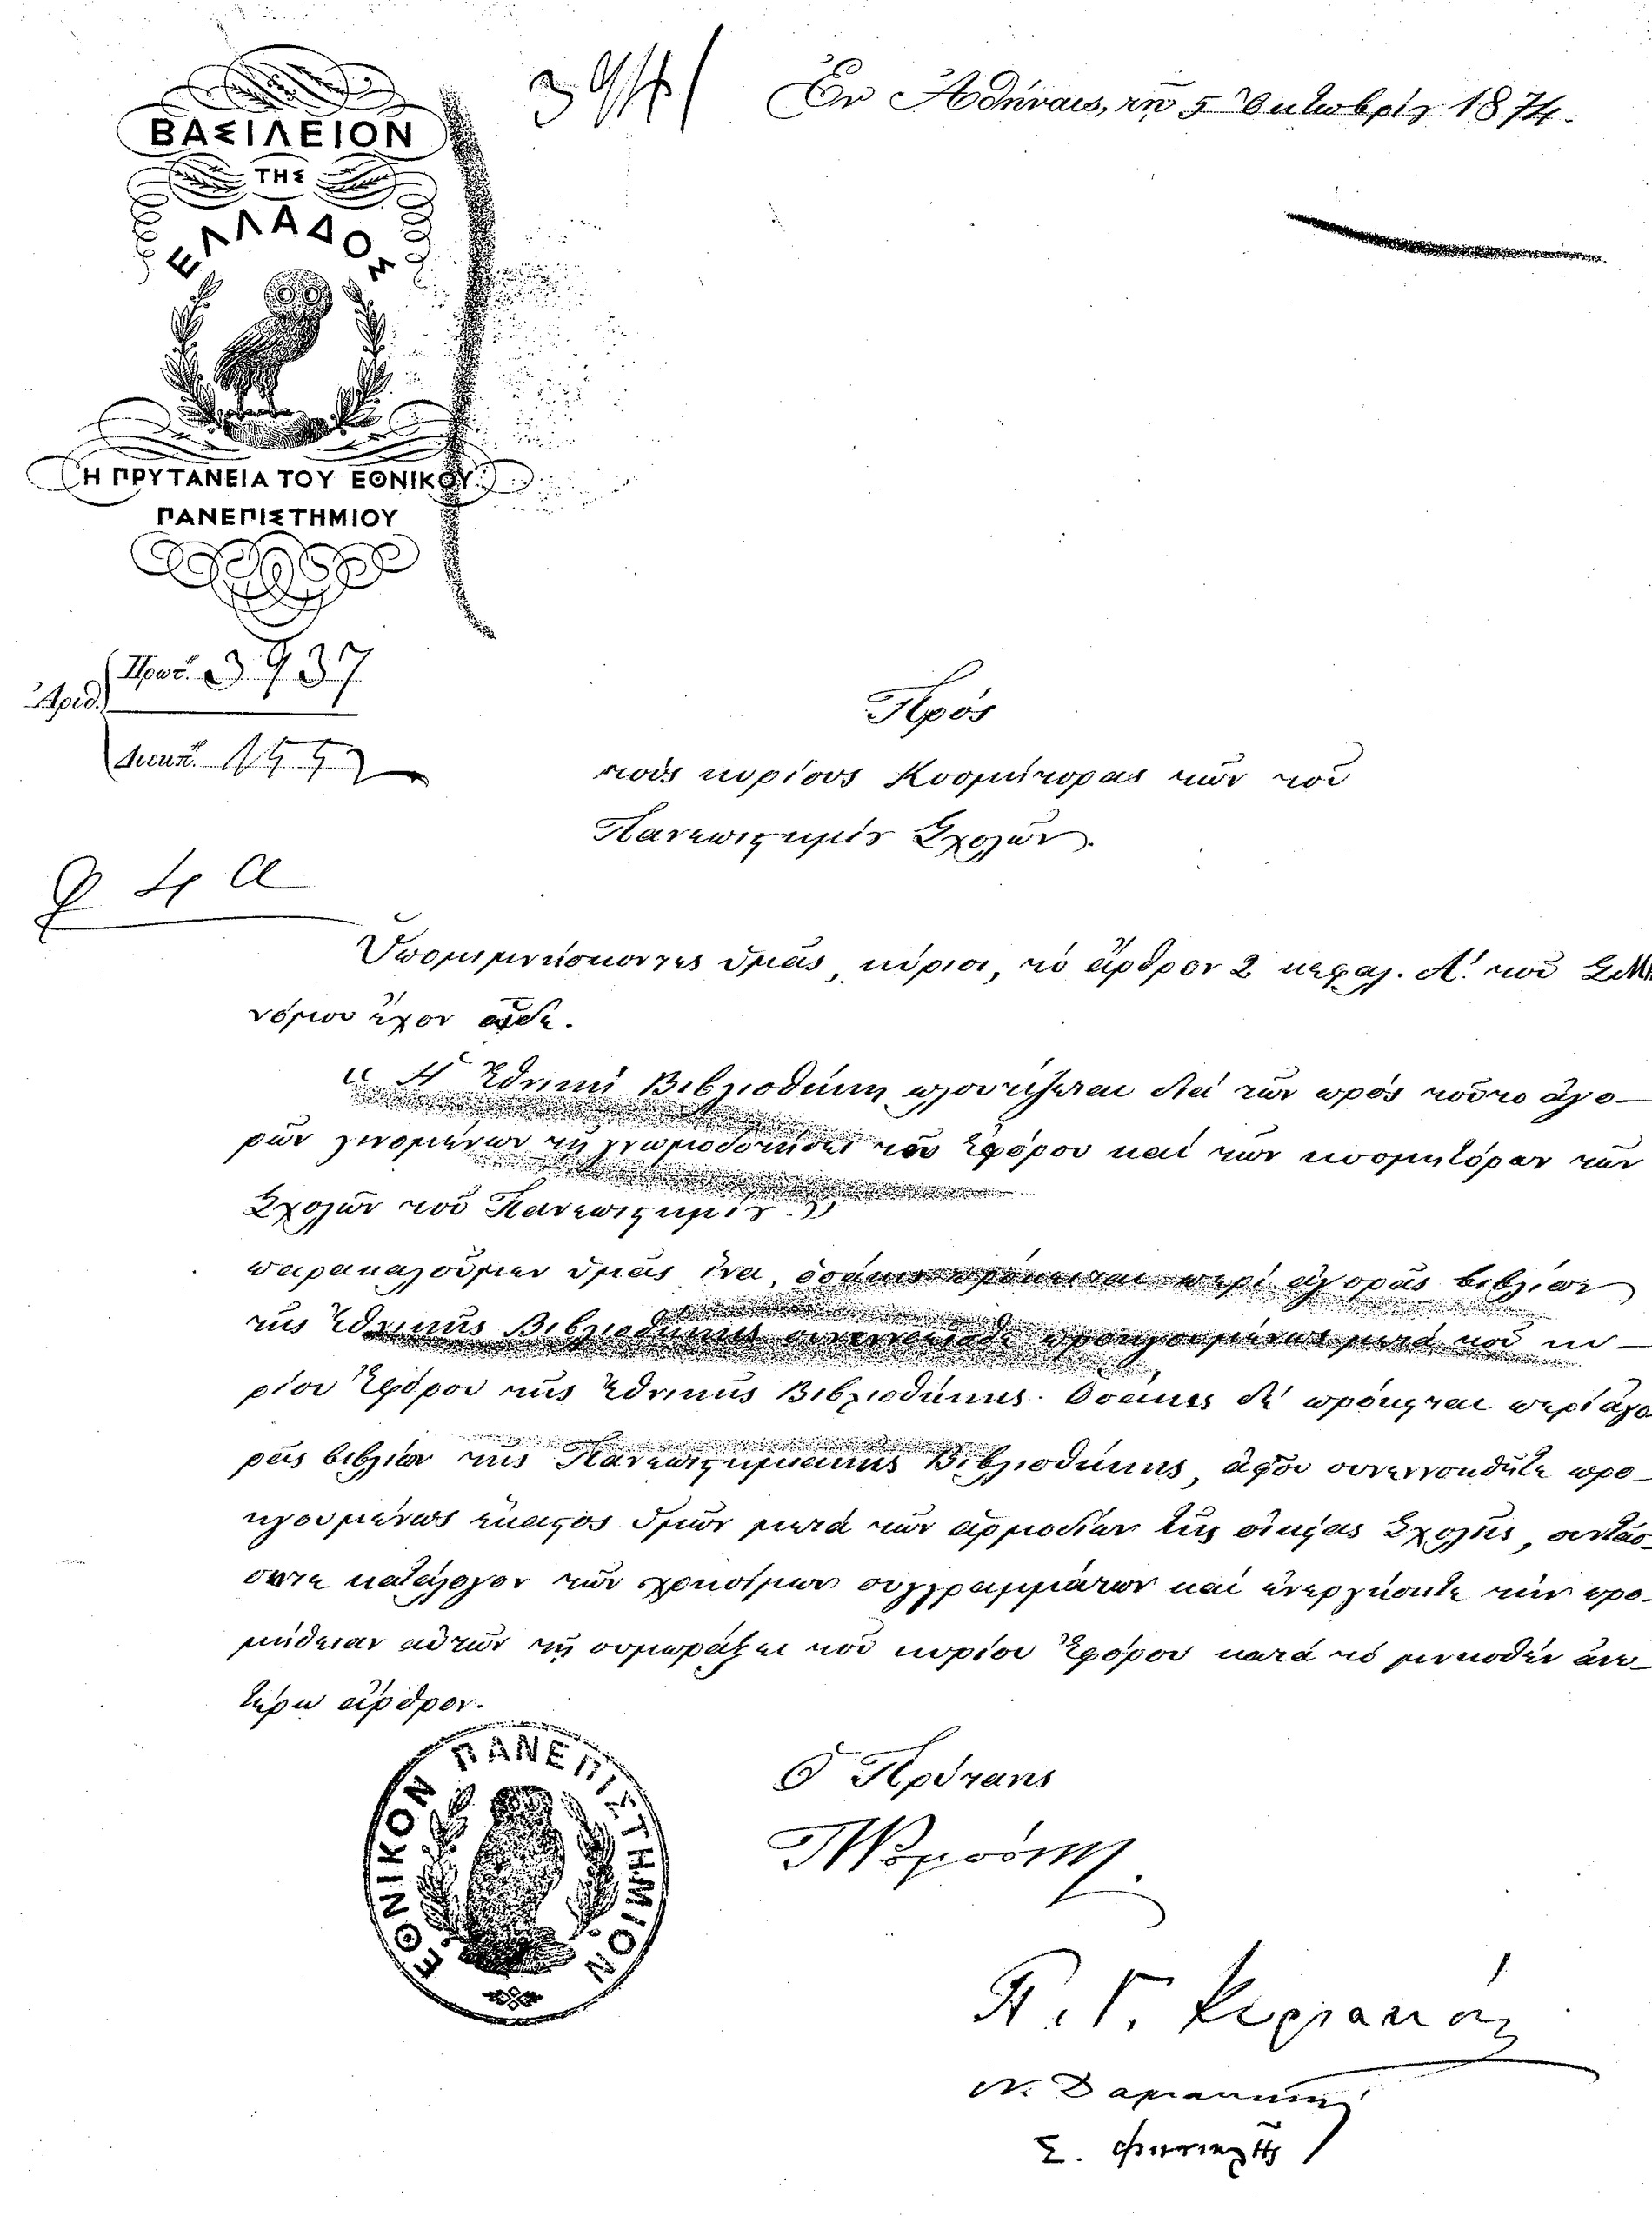 3941
Ἐν Ἀθήναις, τῇ 5 Ὀκτωβρίου 1874.
ΒΑΣΙΛΕΙΟΝ
ΤΗΣ
ΕΛΛΑΔΟΣ
Ἡ ΠΡΥΤΑΝΕΙΑ ΤΟΥ ΕΘΝΙΚΟΥ
ΠΑΝΕΠΙΣΤΗΜΙΟΥ
Ἀριθ.
Πρωτ. 3937
Διεκπ. 1552
Πρός
τούς κυρίους Κοσμήτορας τῶν τοῦ
Πανεπιστημίου Σχολῶν.
φ 4 α
Ὑπομιμνήσκοντες ὑμᾶς, κύριοι, τό ἄρθρον 2 κεφαλ. Α΄. τοῦ ΣΜΗ
νόμου ἔχον ὧδε.
« Ἡ Ἐθνική Βιβλιοθήκη πλουτίζεται διά τῶν πρός τοῦτο ἀγο-
ρῶν γινομένων τῇ γνωμοδοτήσει τοῦ Ἐφόρου καί τῶν κοσμητόρων τῶν
Σχολῶν τοῦ Πανεπιστημίου.»
παρακαλοῦμεν ὑμᾶς ἵνα, ὁσάκις πρόκειται περί ἀγορᾶς βιβλίων
τῆς Ἐθνικῆς Βιβλιοθήκης συνεννοῆσθε προηγουμένως μετά τοῦ κυ-
ρίου Ἐφόρου τῆς Ἐθνικῆς Βιβλιοθήκης. Ὁσάκις δέ πρόκειται περί ἀγο
ρᾶς βιβλίων τῆς Πανεπιστημιακῆς Βιβλιοθήκης, ἀφοῦ συνεννοηθῆτε προ-
ηγουμένως ἕκαστος ὑμῶν μετά τῶν ἁρμοδίων τῆς οἰκείας Σχολῆς, συντάσ-
σητε κατάλογον τῶν χρησίμων συγγραμμάτων καί ἐνεργήσητε τήν προ-
μήθειαν αὐτῶν τῇ συμπράξει τοῦ κυρίου Ἐφόρου κατά τό μνησθέν ἀνω-
τέρω ἄρθρον.
Ὁ Πρύτανις
ΕΘΝΙΚΟΝ ΠΑΝΕΠΙΣΤΗΜΙΟΝ
Π. Γ. Κυριακός
Ν. Δαμασκηνός
Σ.